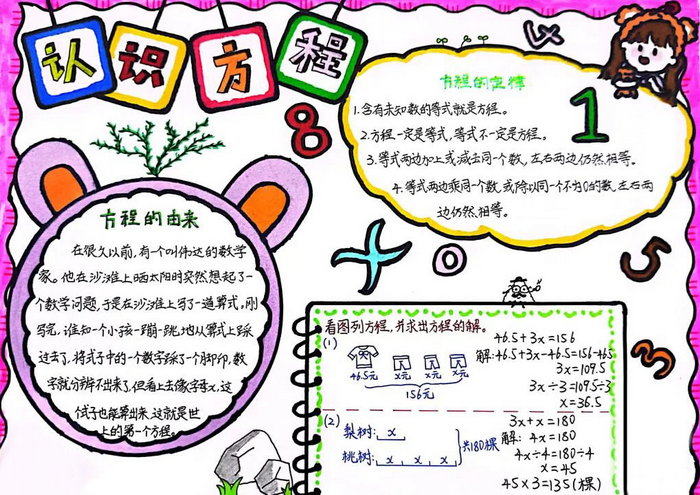 认识方程
方程的由来
在很久以前,有一个叫伟达的数学
家。他在沙滩上晒太阳时突然想起了一
个数学问题,于是在沙滩上写了一道算式,刚
写完,谁知一个小孩一蹦一跳地从算式上踩
过去了,将式子中的一个数字踩了一个脚印,数
字就分辨不出来了,但看上去像字母x,这
式子也能算出来,这就是世
上的第一个方程。
方程的定律
1.含有未知数的等式就是方程。
2.方程一定是等式,等式不一定是方程。
3.等式两边加上或减去同一个数,左右两边仍然相等。
4.等式两边乘同一个数,或除以同一个不为0的数,左右两
边仍然相等。
8
1
x
+
0
5
3
看图列方程,并求出方程的解。
(1)
46.5元 x元 x元 x元
156元
46.5+3x=156
解:46.5+3x-46.5=156-46.5
3x=109.5
3x÷3=109.5÷3
x=36.5
(2)
梨树: x
桃树: x x x
共180棵
3x+x=180
解: 4x=180
4x÷4=180÷4
x=45
45×3=135(棵)